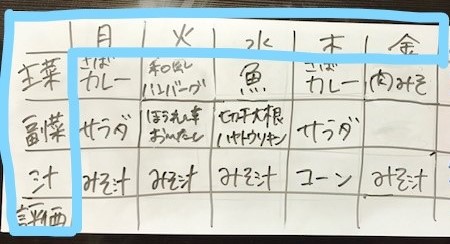 月 火 水 木 金
主菜 さばカレー 和風ハンバーグ 魚 さばカレー 肉みそ
副菜 サラダ ほうれん草おひたし 切干大根ハヤトウリキン サラダ
汁 みそ汁 みそ汁 みそ汁 コーン みそ汁
評価